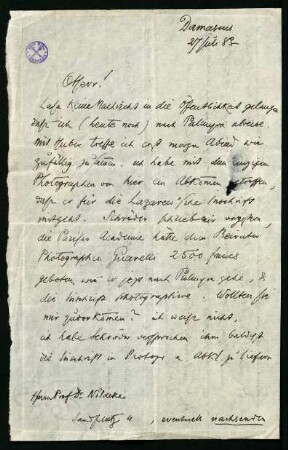 Damascus
27 Juli 83.
Offen!
Lass keine Nachricht in die Öffentlichkeit gelangen
dass ich (heute noch) nach Palmyra abreise
mit Huber treffe ich erst morgen Abend wie
zufällig zusammen. ich habe mit dem einzigen
Photographen von hier ein Abkommen getroffen,
dass er für die Lazaren'sche Inschrift
mitgeht. Schröder schrieb mir vorgestern,
die Pariser Academie hätte dem Beiruter
Photographen 2500 francs
geboten, wenn er jetzt nach Palmyra gehe, &
die Inschrift photographiere. Wollten Sie
mir zuvorkommen? ich weiss nicht,
ich habe Schröder versprochen ihm baldigst
die Inschrift in Photogr u Abkl. zu liefern
Herrn Prof. Dr. Nöldeke
, eventuell nachsenden